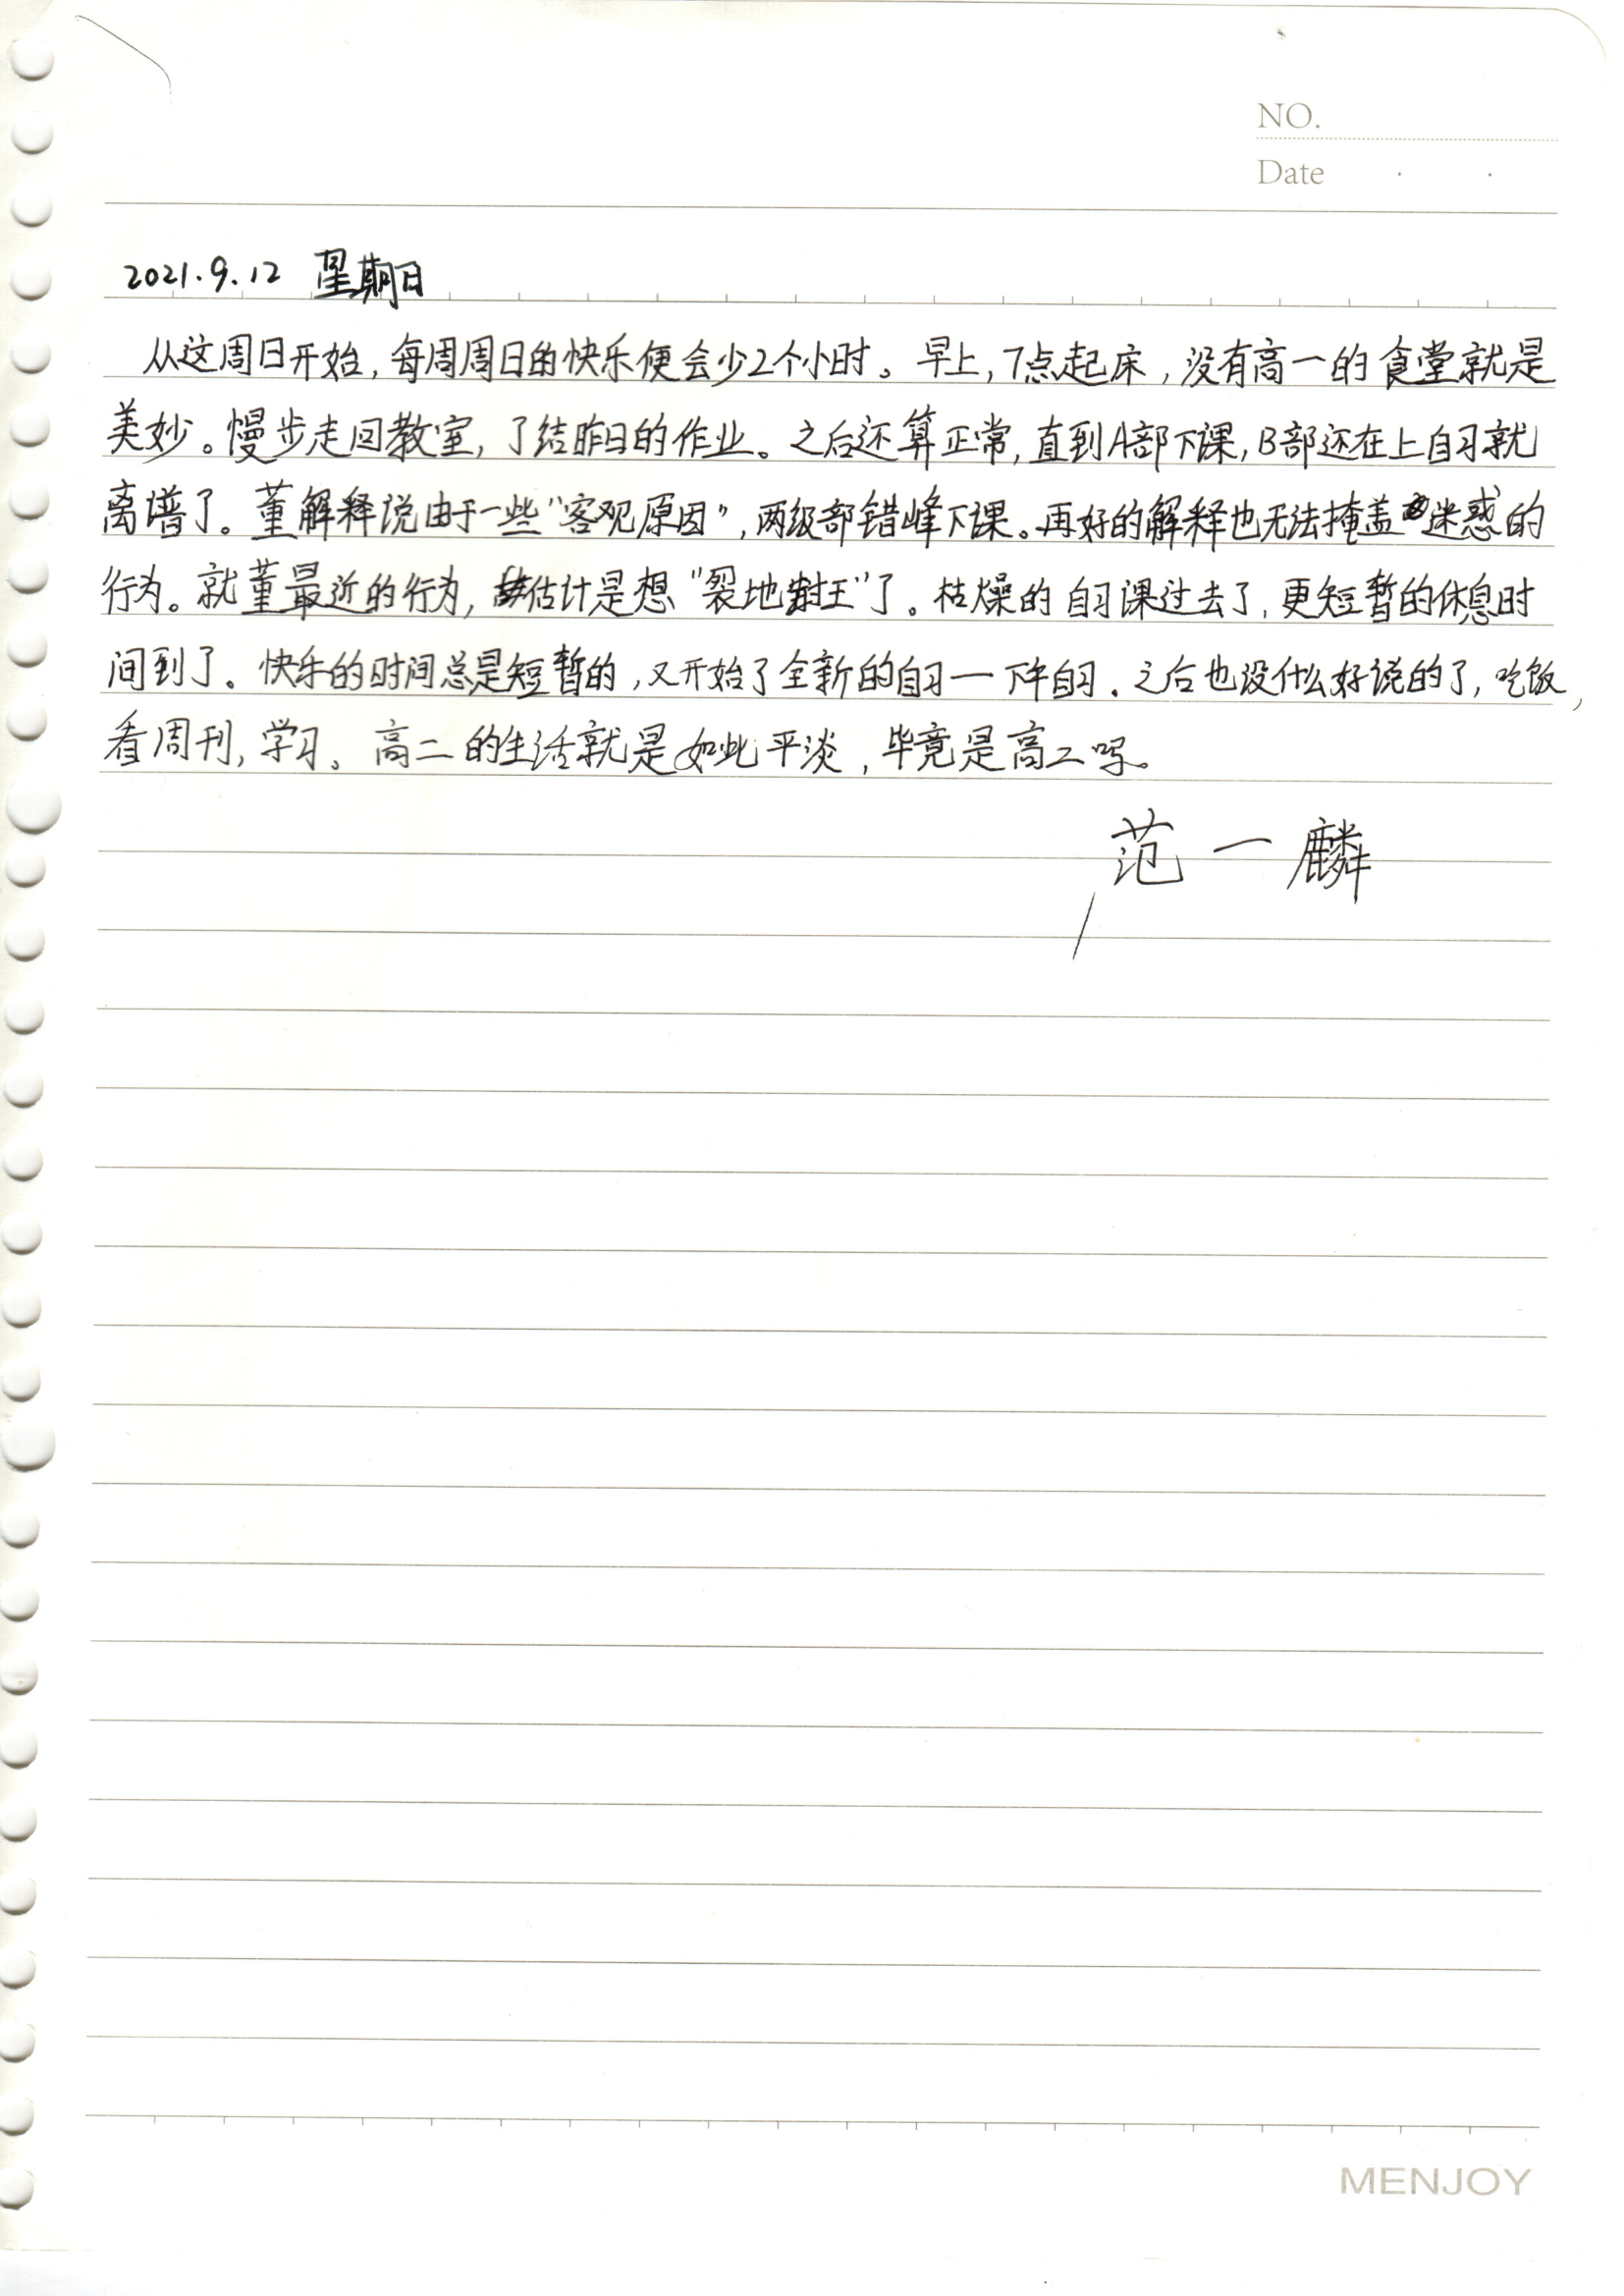 NO.
Date . .
2021.9.12 星期日
从这周日开始,每周周日的快乐便会少2个小时。早上,7点起床,没有高一的食堂就是
美妙。慢步走回教室,了结昨日的作业。之后还算正常,直到A部下课,B部还在上自习就
离谱了。董解释说由于一些“客观原因”,两级部错峰下课。再好的解释也无法掩盖迷惑的
行为。就董最近的行为,估计是想“裂地封王”了。枯燥的自习课过去了,更短暂的休息时
间到了。快乐的时间总是短暂的,又开始了全新的自习—下午自习.之后也没什么好说的了,吃饭,
看周刊,学习。高二的生活就是如此平淡,毕竟是高二吗。
范一麟
MENJOY